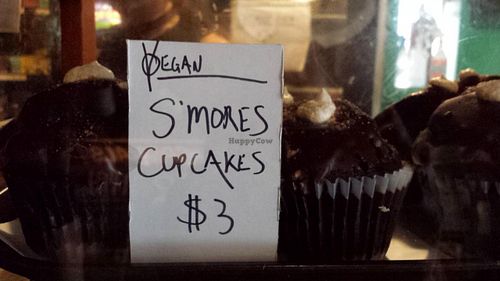 VEGAN
S'MORES
HappyCow
CUPCAKES
$3